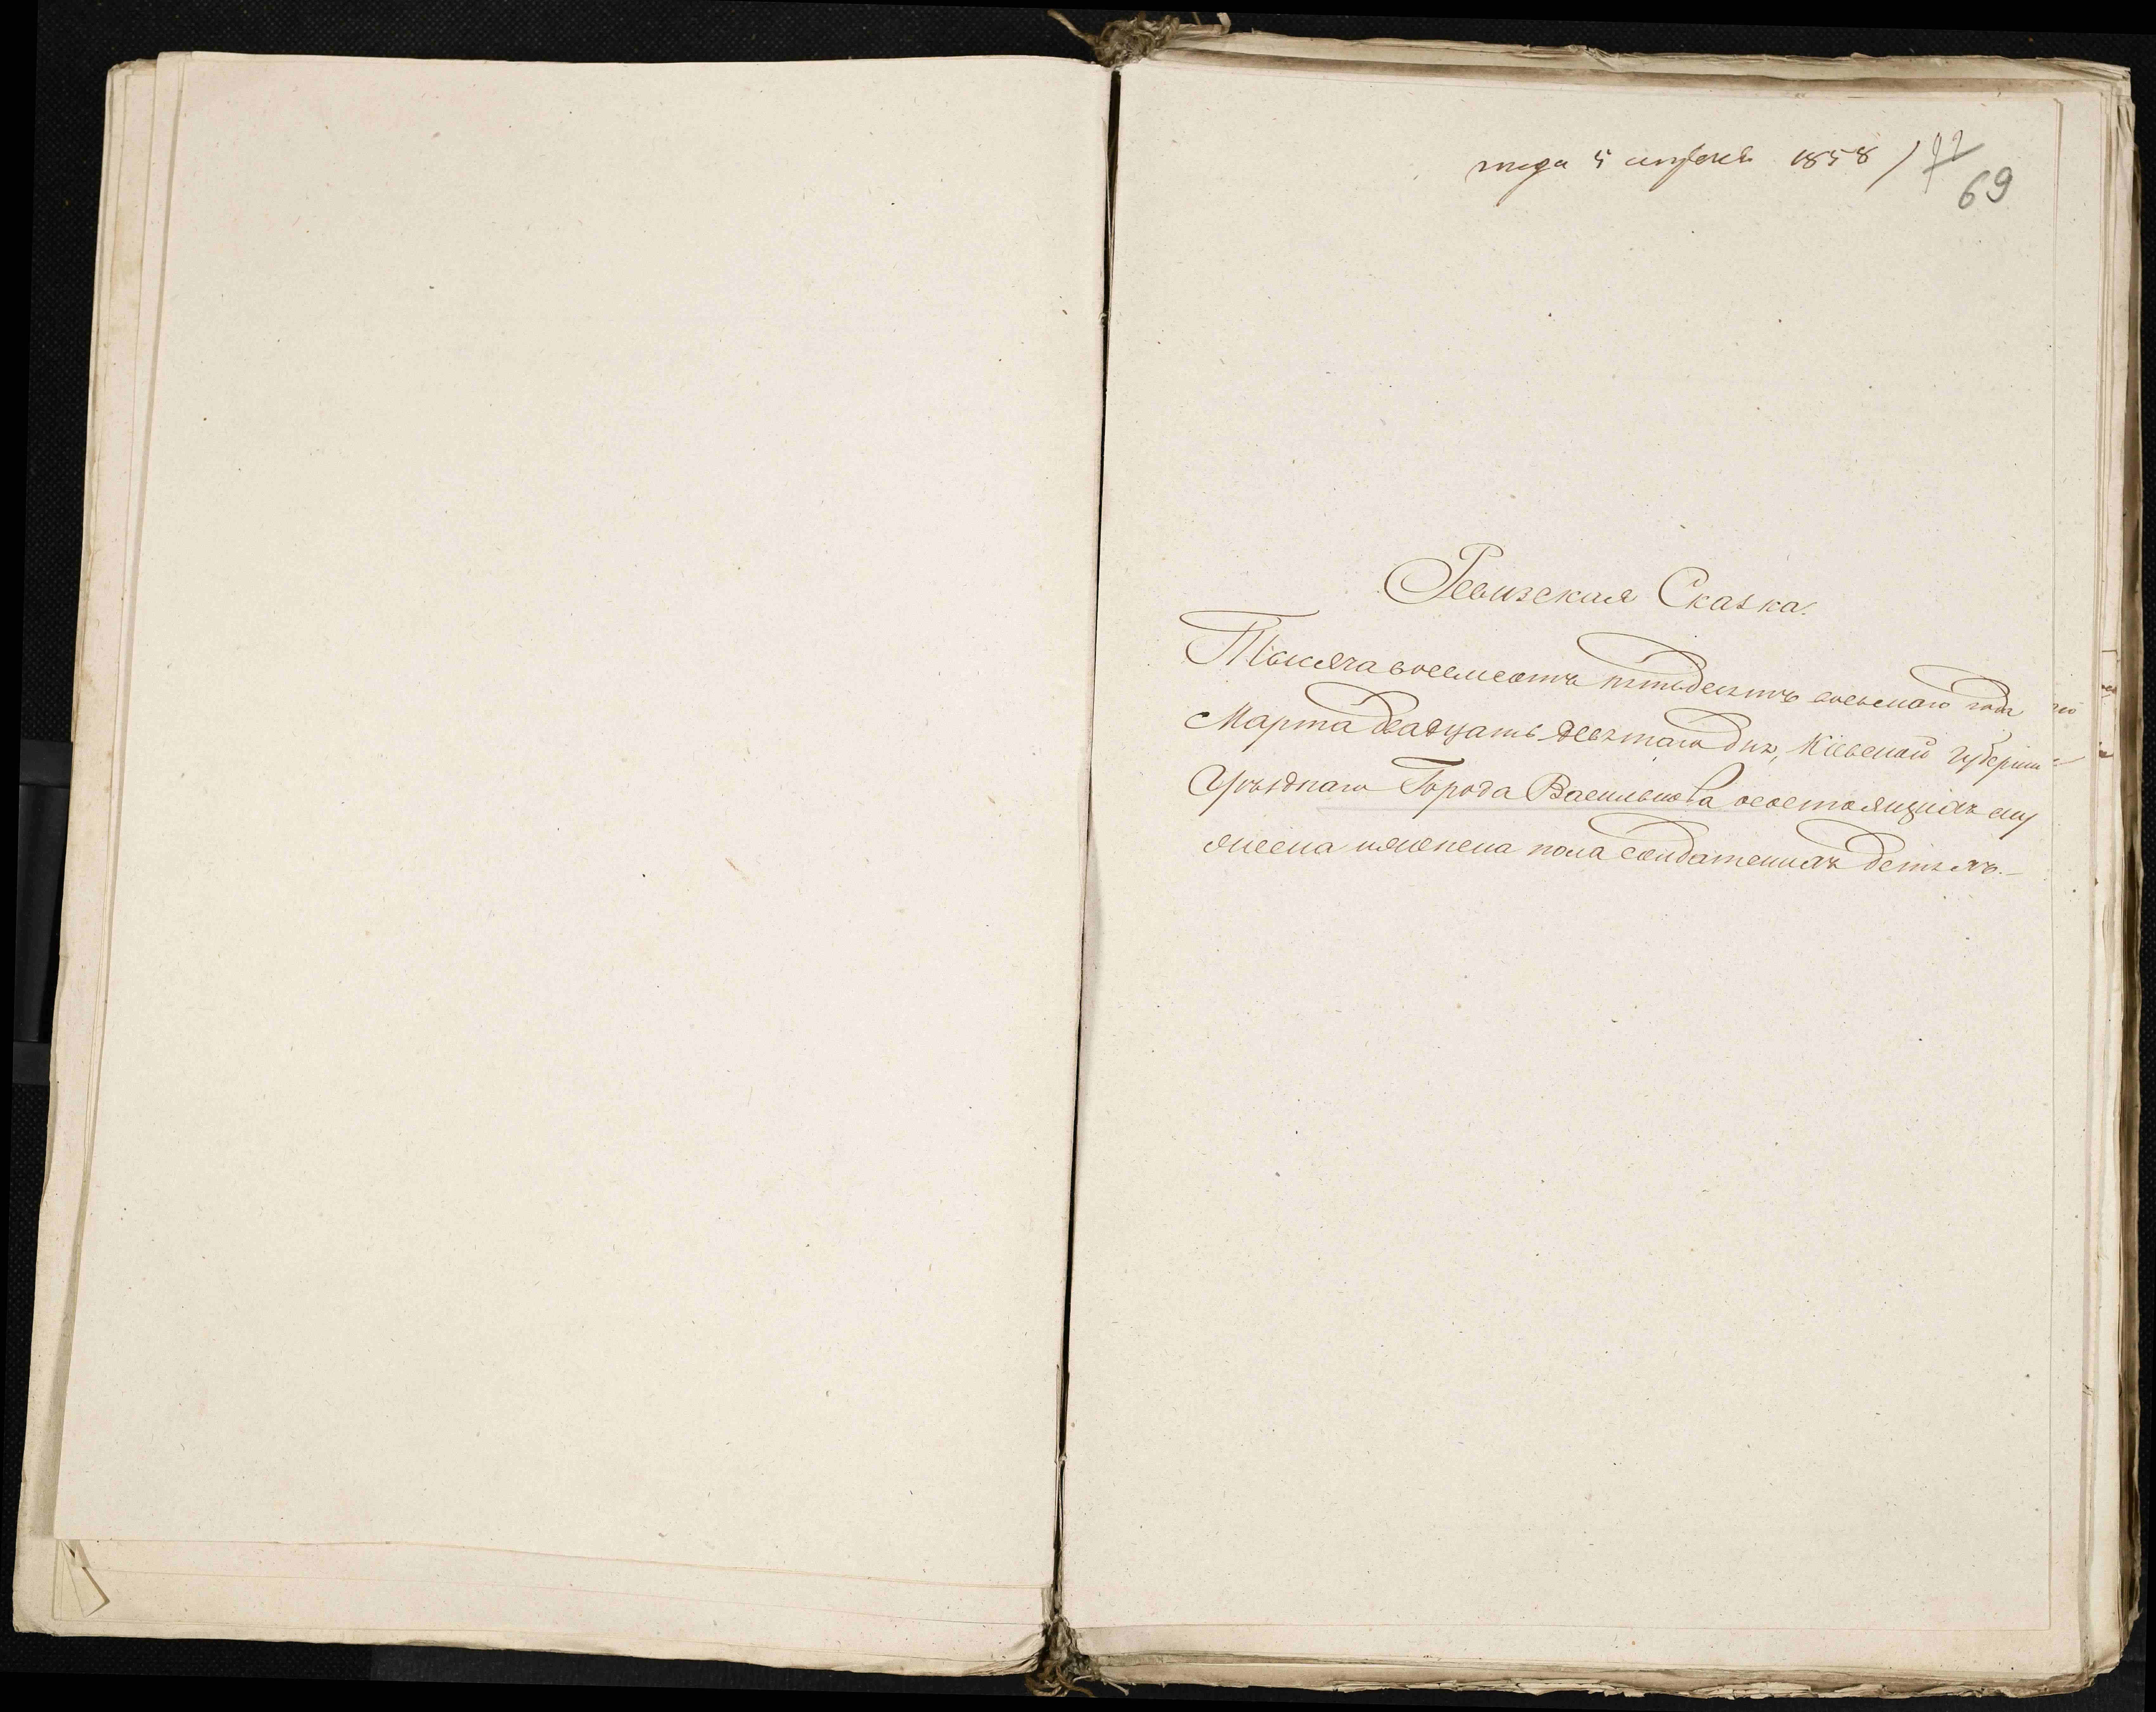 5 апреля 1858 / 77
69
Ревизская Сказка.
Тысяча восемсотъ пятьдесятъ восьмаго года
Марта двадцать девятаго дня, Кіевской Губерніи
Уѣзднаго Города Василькова о состоящихъ му
жеска и женска пола солдатскихъ детяхъ.—